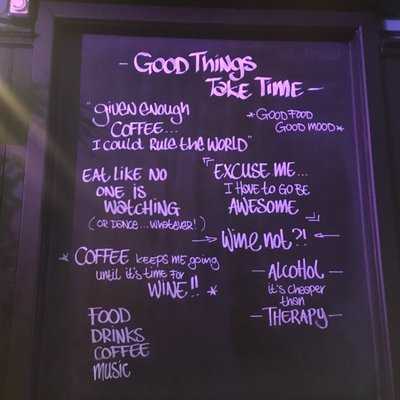 - GOOD THINGS
TAKE TIME -
"given enough
COFFEE...
I could RULE the WORLD"
*GOOD FOOD
GOOD MOOD*
EAT LIKE NO
ONE IS
WATCHING
(OR DANCE...WHATEVER!)
"EXCUSE ME...
I HAVE TO GO BE
AWESOME"
→ Wine not?! ←
* COFFEE KEEPS ME going
until it's time for
WINE!! *
- ALCOHOL -
it's cheaper
than
- THERAPY -
FOOD
DRINKS
COFFEE
MUSIC